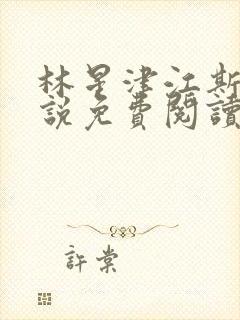 林星津江斯
說免費閱讀
許棠